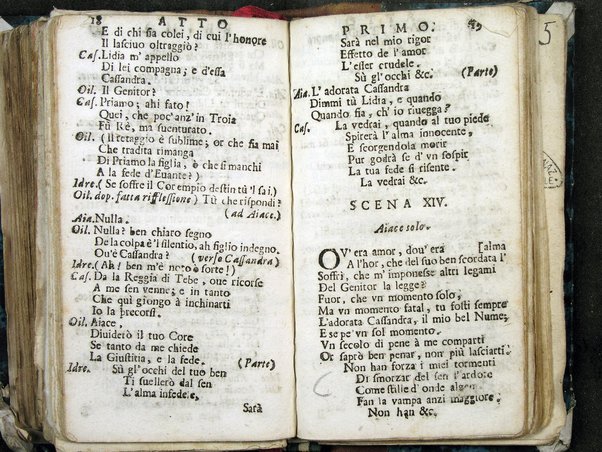 18 ATTO
E di chi sia colei, di cui l'honore
Il lasciuo oltraggiò?
Cas. Lidia m' appello
Di lei compagna; e d'essa
Cassandra.
Oil. Il Genitor?
Cas. Priamo; ahi fato!
Quei, che poc' anz' in Troia
Fù Rè, ma suenturato.
Oil. (Il retaggio è sublime; or che fia mai
Che tradita rimanga
Di Priamo la figlia, ò che si manchi
A la fede d'Euante?)
Idre. (Se soffre il Cor empio destin tù 'l sai.)
Oil. dop. fatta riflessione) Tù che rispondi?
(ad Aiace.)
Aia. Nulla.
Oil. Nulla? ben chiaro segno
De la colpa è 'l silentio, ah figlio indegno.
Ou'è Cassandra? (verso Cassandra)
Idre. (Ah! ben m'è noto o sorte!)
Cas. Da la Reggia di Tebe, oue ricorse
A me sen venne; e in tanto
Che quì giongo à inchinarti
Io la precorsi.
Oil. Aiace,
Diuiderò il tuo Core
Se tanto da me chiede
La Giustitia, e la fede. (Parte)
Idre. Sù gl'occhi del tuo ben
Ti suellerò dal sen
L'alma infedele,
Sarà
PRIMO.
Sarà nel mio rigor
Effetto de l'amor
L'esser crudele.
Sù gl'occhi &c. (Parte)
Aia. L' adorata Cassandra
Dimmi tù Lidia, e quando
Quando fia, ch' io riuegga?
Cas. La vedrai, quando al tuo piede
Spirerà l'alma innocente,
E scorgendola morir
Pur godrà se d' vn sospir
La tua fede si risente.
La vedrai &c.
SCENA XIV.
Aiace solo.
OV' era amor, dou' era [alma
A l'hor, che del suo ben scordata l'
Soffrì, che m' imponesse altri legami
Del Genitor la legge?
Fuor, che vn momento solo,
Ma vn momento fatal, tu fosti sempre
L'adorata Cassandra, il mio bel Nume;
E se pe' vn sol momento
Vn secolo di pene à me comparti
Or saprò ben penar, non più lasciarti.
Non han forza i miei tormenti
Di smorzar del sen l'ardore
Come stille d' onde
Fan la vampa anzi maggiore.
Non han &c.
5